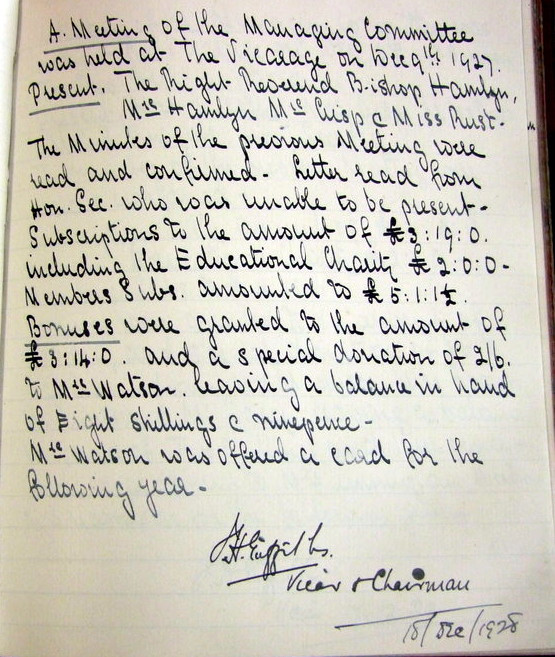 A. Meeting of the Managing Committee
was held at The Vicarage on Dec 9th 1927.
Present. The Right Reverend Bishop Hamlyn,
Mrs Hamlyn Mrs Crisp & Miss Rust-
The Minutes of the previous Meeting were
read and confirmed - Letter read from
Hon. Sec. who was unable to be present -
Subscriptions to the amount of £3:19:0.
including the Educational Charity £2:0:0 -
Members Subs. amounted to £5:1:1½.
Bonuses were granted to the amount of
£3:14:0. and a special donation of 2/6.
to Mrs Watson. leaving a balance in hand
of Eight shillings & ninepence -
Mrs Watson was offered a card for the
following year -
Vicar & Chairman
18/Dec/1928